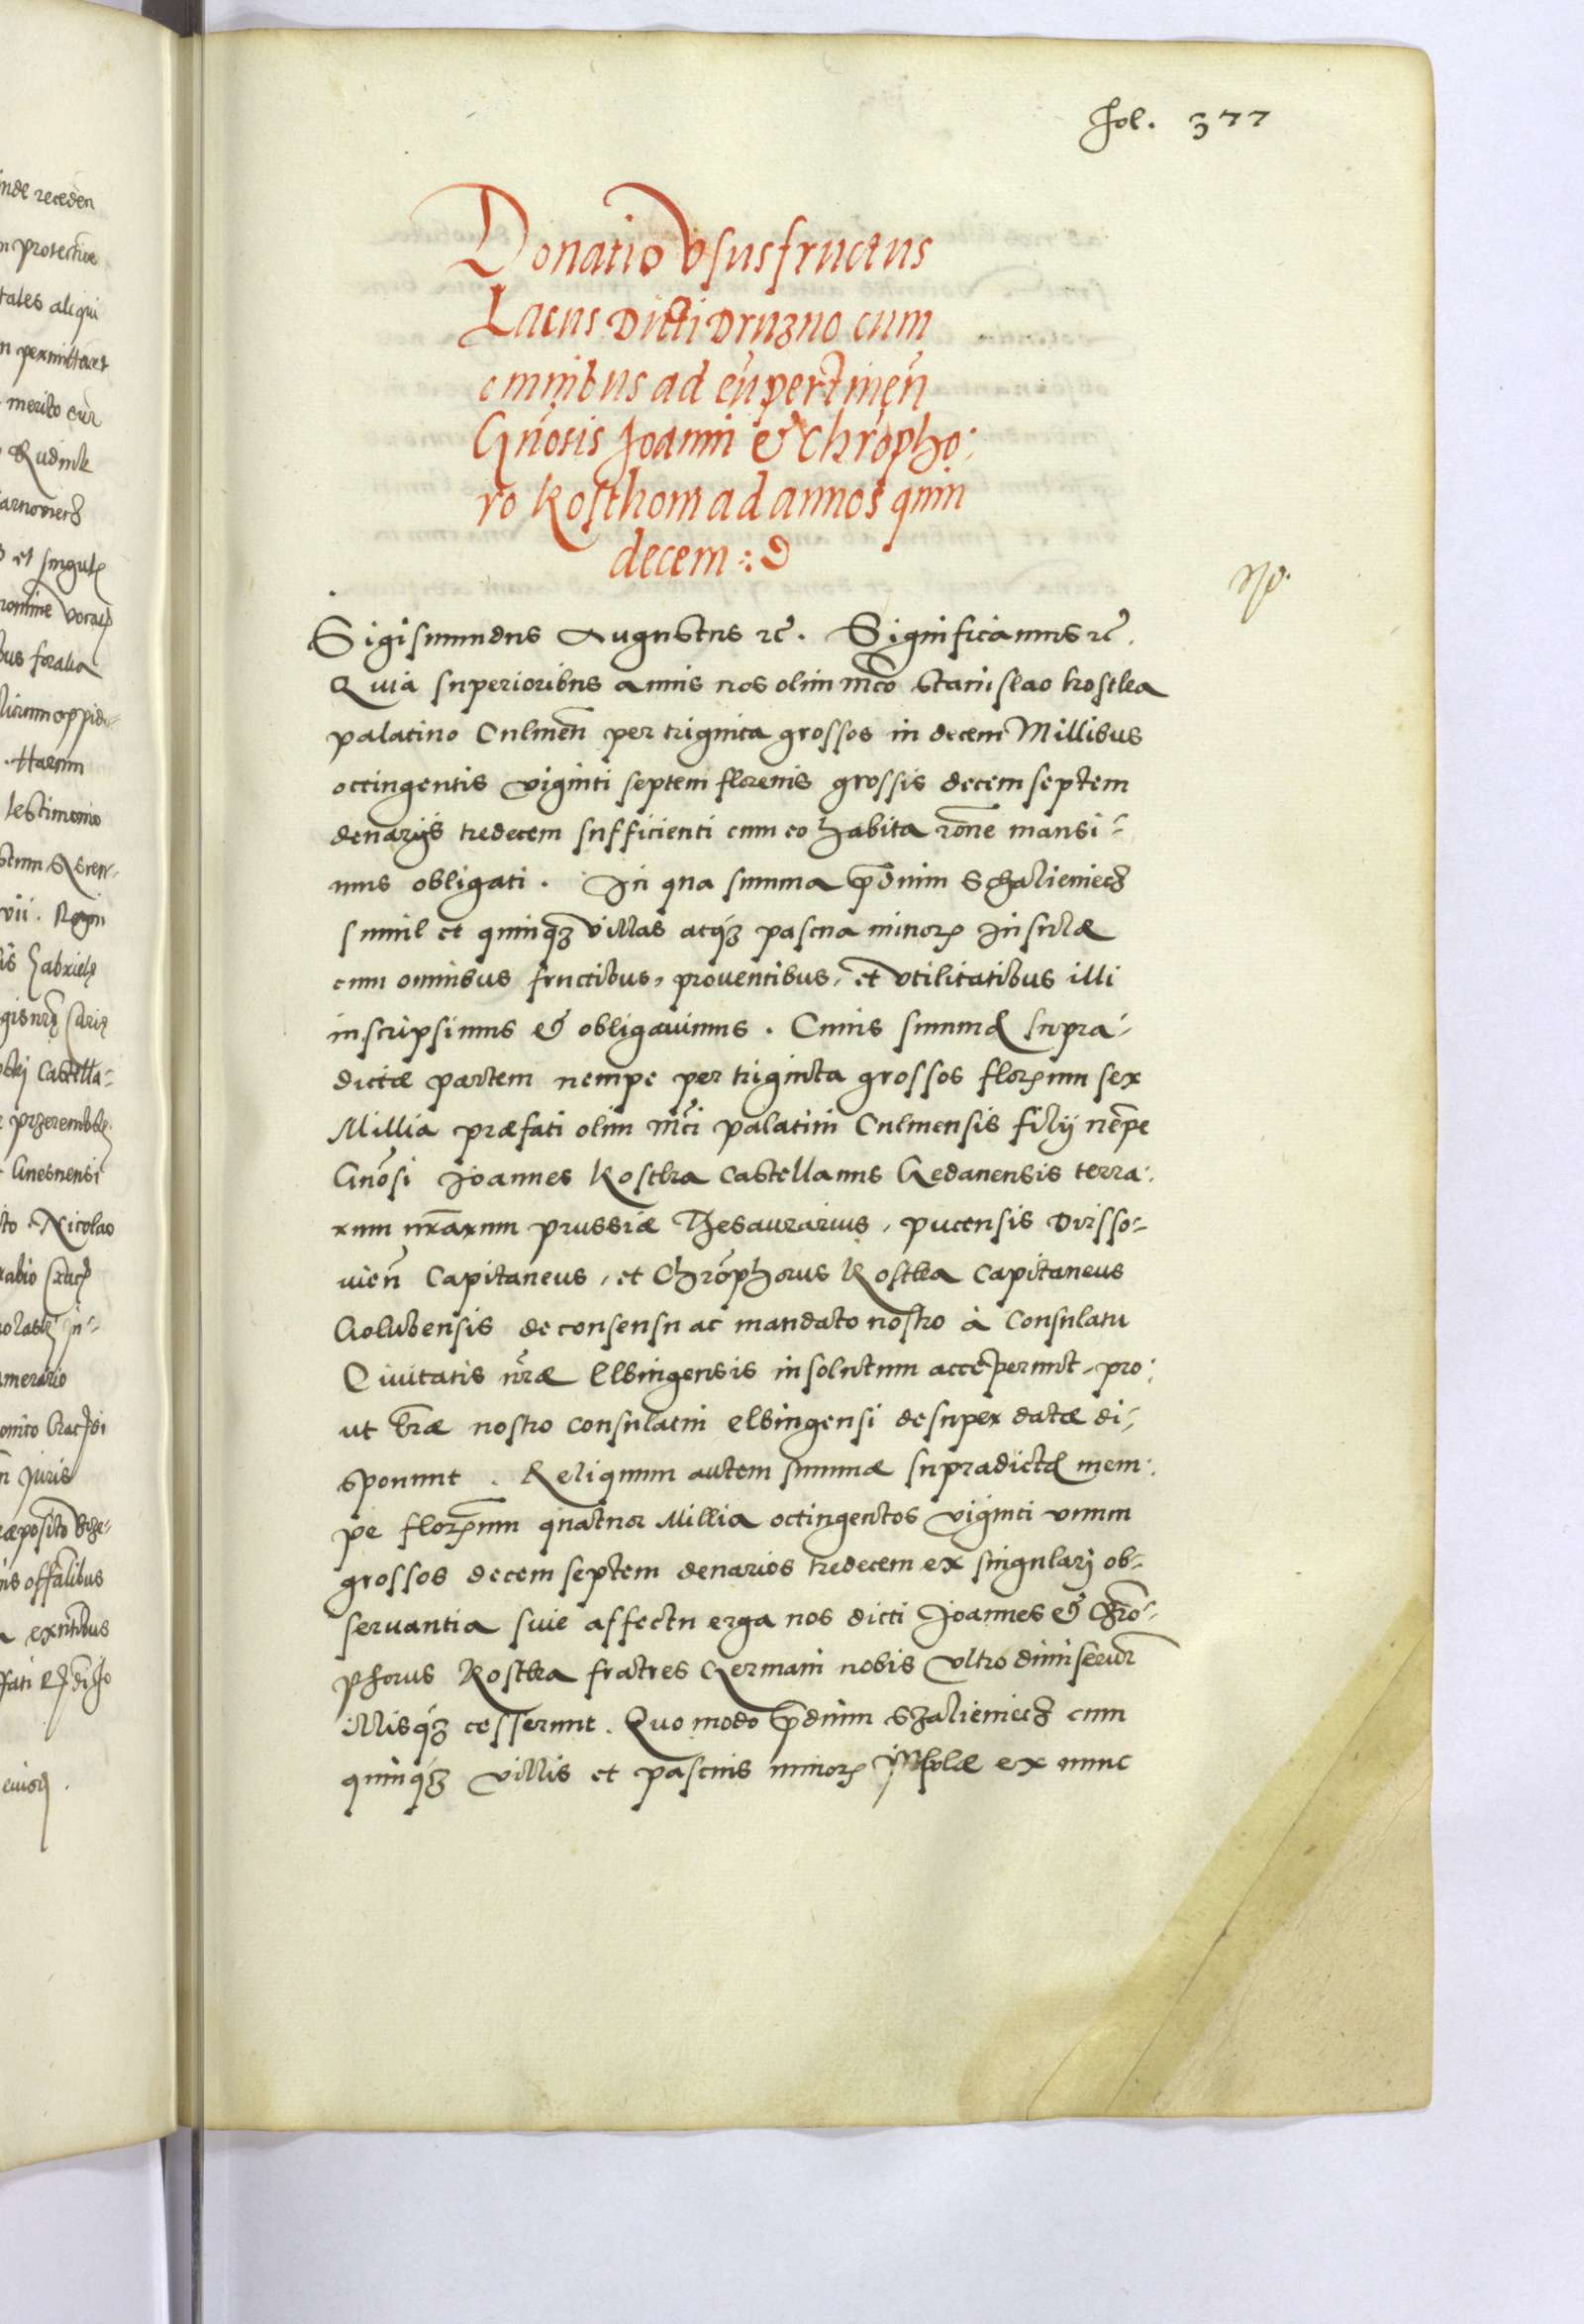 nde receden
protectione
tales aliqui
permitteret
merito cur
Rudink
et singul
nomine
testimonio
Castella-
Gnesnensi
Nicolao
juris
fol. 377
Donatio Vsusfructus
Lacus Dicti Druzno cum
omnibus ad eū pertineñ
Gñosis Joanni & Chr̃opho:
ro Kosthom ad annos quin
decem :
No.
Sigismundus Augustus rc̃. Significamus rc̃.
Quia superioribus annis nos olim mc̃o Stanislao kostka
palatino Culmeñ per triginta grossos in decem Millibus
octingentis viginti septem florenis grossis decem septem
denarijs tredecem sufficienti cum eo habita rõne mansi-
mus obligati. In qua summa p̃dium Schalieniecz
simul et quinqz villas atqz pascua minoris Insulæ
cum omnibus fructibus, proventibus, et vtilitatibus illi
inscripsimus & obligavimus. Cuius summæ supra-
dictæ partem nempe per triginta grossos florenum sex
Millia præfati olim mc̃i palatini Culmensis filij nẽpe
Gñosi Joannes Kostka Castellanus Gedanensis terra:
rum nrãrum prussiæ Thesaurarius, pucensis Dirsso-
uieñ Capitaneus, et Chrõphorus Kostka Capitaneus
Golubensis de consensu ac mandato nostro à Consulatu
Ciuitatis nr̃æ Elbingensis in solutum acceperunt, pro:
ut lr̃æ nostro consulatui elbingensi desuper datæ di-
sponunt. Reliquum autem summæ supradictæ nem:
pe florenum quatuor Millia octingentos viginti unum
grossos decem septem denarios tredecem ex singulari ob-
seruantia suie affectu erga nos dicti Joannes & Chrõ-
phorus Kostka fratres Germani nobis vltro dimiserunt
illisqz cesserunt. Quo modo p̃dium Szalieniecz cum
quinqz villis et pascuis minoris insulæ ex nunc